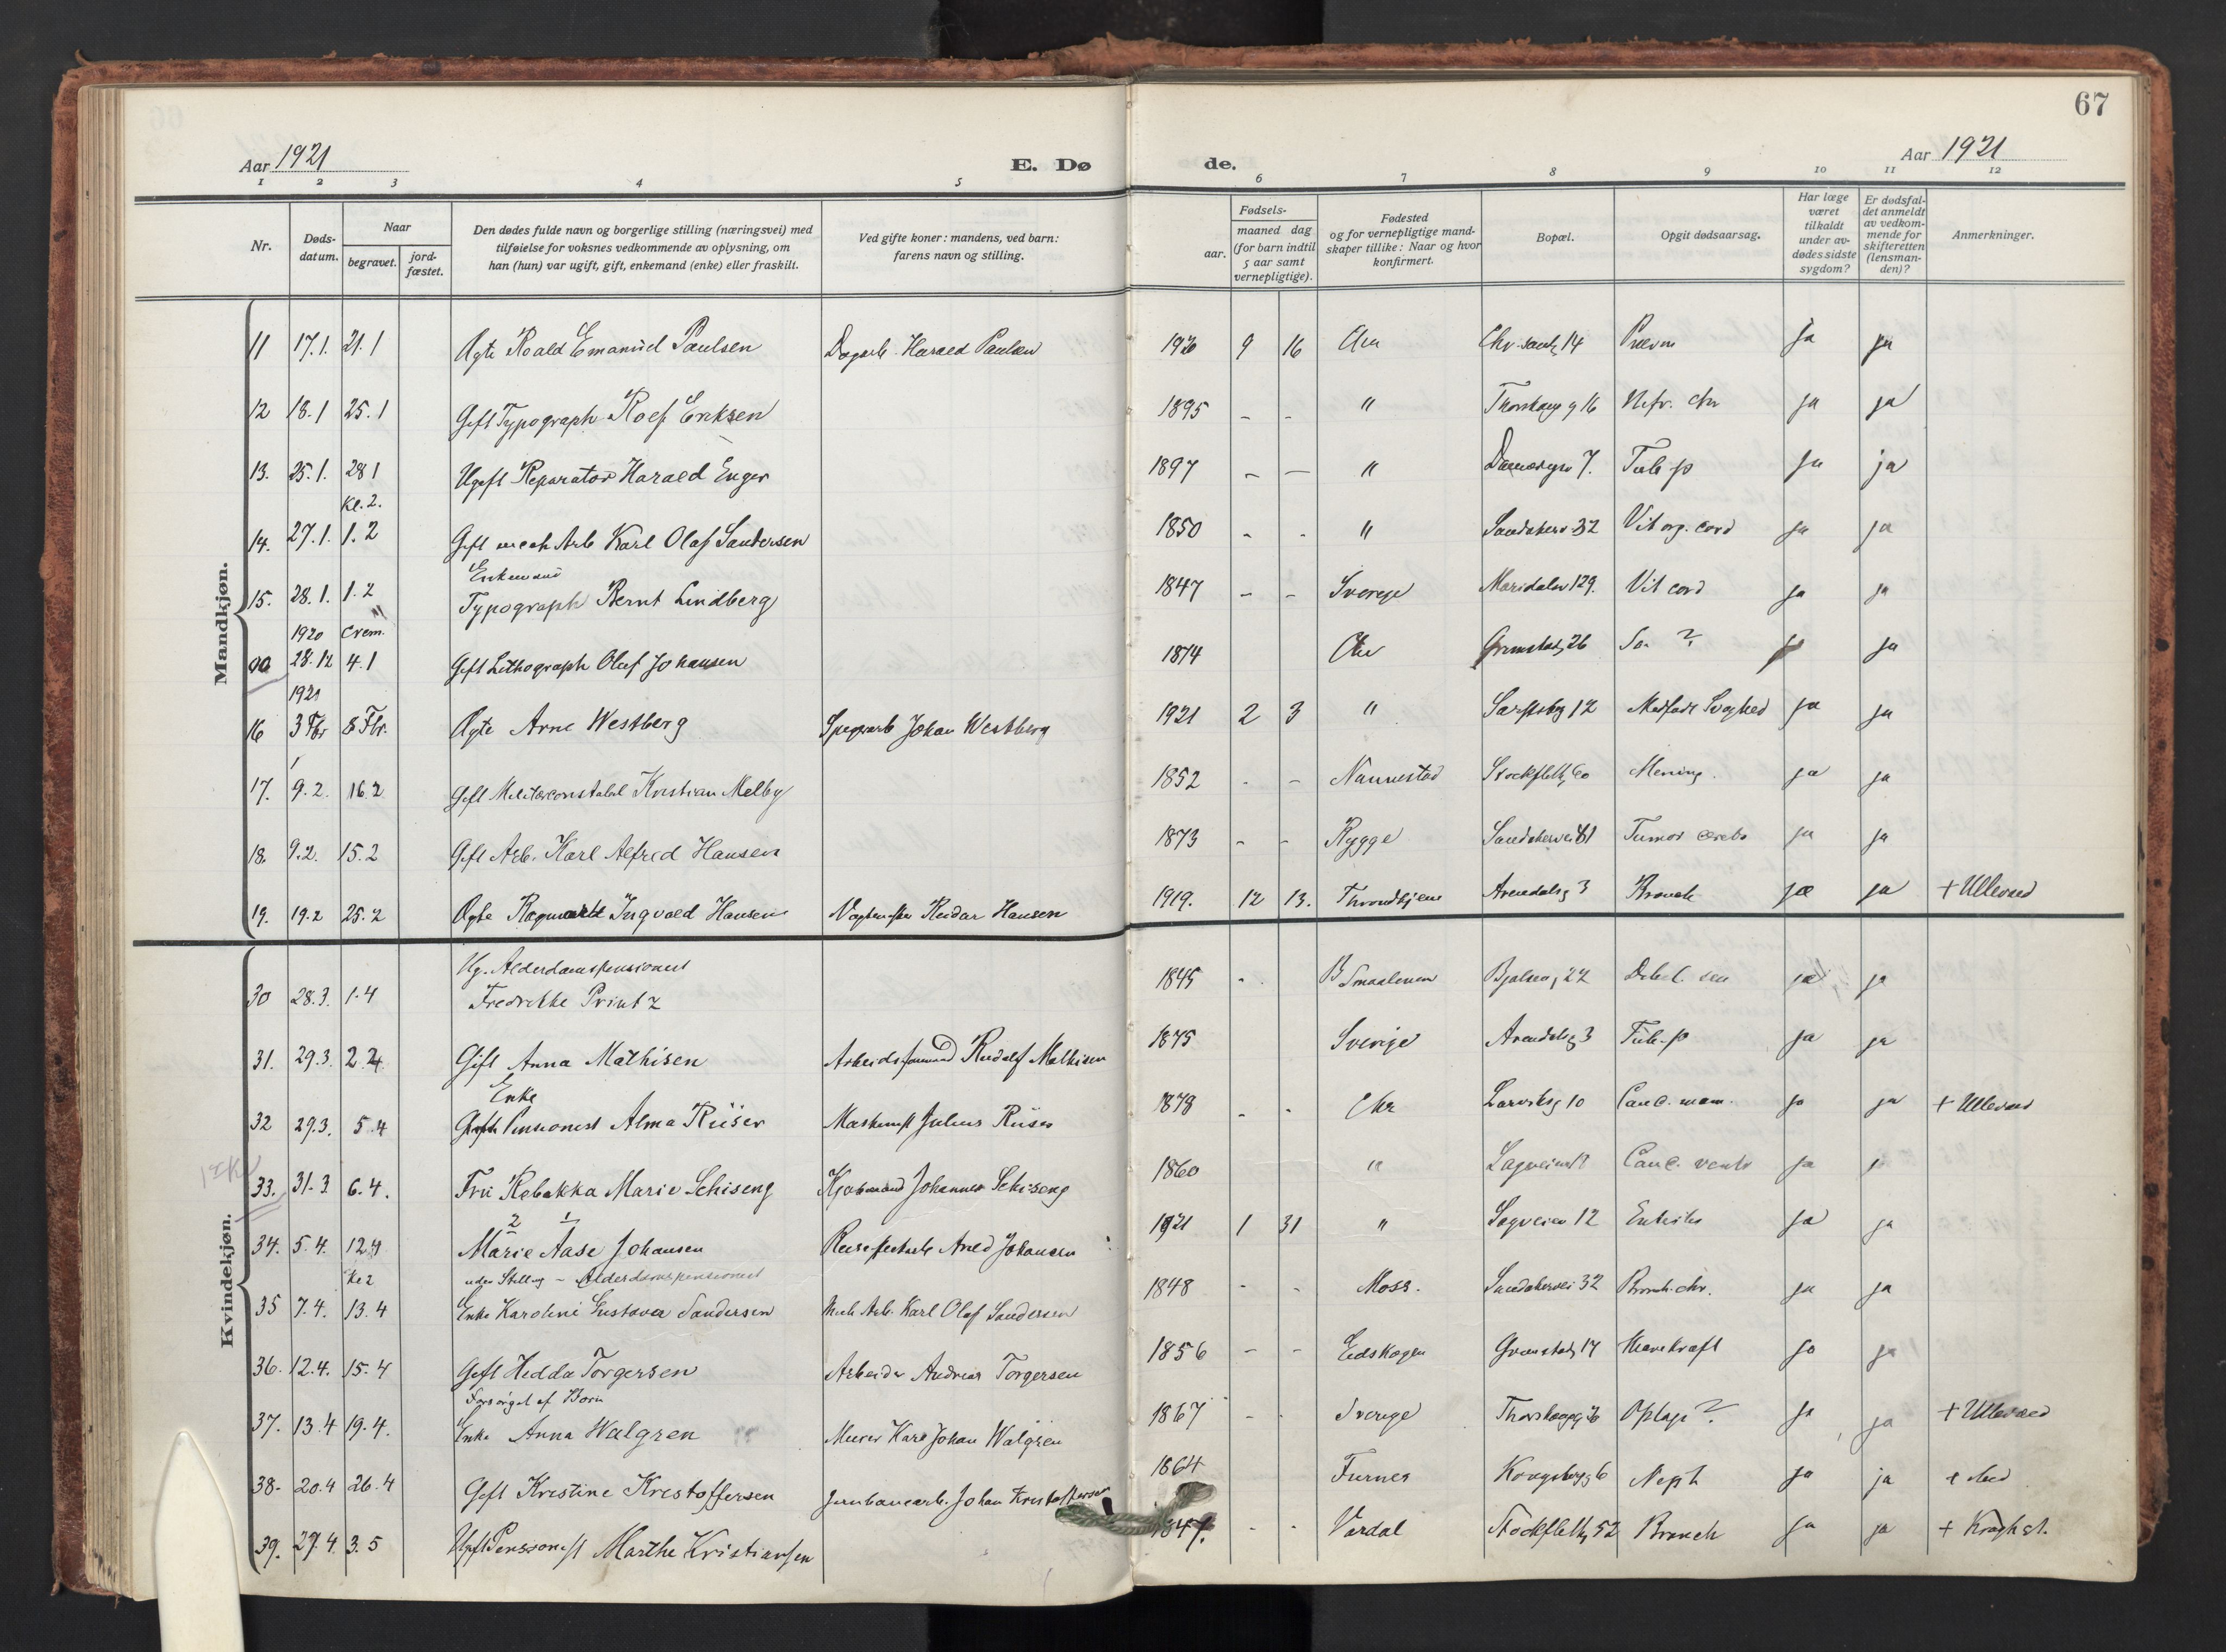 67
Aar 1921
E. Dø
de.
Aar 1921
1 2 3 4 5 6 7 8 9 10 11 12
Nr.
Døds-
datum.
Naar
begravet.
jord-
fæstet.
Den dødes fulde navn og borgerlige stilling (næringsvei) med
tilføielse for voksnes vedkommende av oplysning, om
han (hun) var ugift, gift, enkemand (enke) eller fraskilt.
Ved gifte koner: mandens, ved barn:
farens navn og stilling.
aar.
Fødsels-
maaned dag
(for barn indtil
5 aar samt
vernepligtige).
Fødested
og for vernepligtige mand-
skaper tillike: Naar og hvor
konfirmert.
Bopæl.
Opgit dødsaarsag.
Har læge
været
tilkaldt
under av-
dødes sidste
sygdom?
Er dødsfal-
det anmeldt
av vedkom-
mende for
skifteretten
(lensman-
den)?
Anmerkninger.
Mandkjøn.
11 17.1. 21.1 Ægte Roald Emanuel Paulsen Harald Paulsen 1920 9 16 Chr 14 ja ja
12 18.1 25.1 Gift Typograph Rolf Eriksen 1895 - - " 16 Nefr. chr ja ja
13. 25.1. 28 1 Ugift Reparatør Harald Enger 1897 - - " 7. Tub. p ja ja
Kl. 2.
14. 27.1. 1.2 Gift mech Arb Karl Olaf Sandersen 1850 - - " Sandakerv 32 Vit org. cord ja ja
Enkemand
15. 28.1. 1.2 Typograph Bernt Lindberg 1847 - - Sverige Maridalsv 129. Vit cord ja ja
1920 Crem.
28.12 4.1 Gift Lithograph Olaf Johansen 1874 Chr Grimstadg 26 ? ja ja
1921
16 3 Fbr 8 Fbr. Ægte Arne Westberg Johan Westberg 1921 2 3 " Sarpsbg 12 Medfødt Svaghed ja ja
17. 9.2. 16.2 Gift Militærconstabel Kristian Melby 1852 - - Nannestad Stockfletg 60 Mening. ja ja
18. 9.2. 15.2 Gift Arb. Karl Alfred Hansen 1873 - - Rygge Sandakervei 81 Tumor cerebr ja ja
19. 19.2 25.2 Ægte Ingvald Hansen Reidar Hansen 1919. 12 13. Throndhjem Arendalsg 3 Bronch ja ja + Ullevaal
Kvindekjøn.
Ug. Alderdomspensionist
30 28.3. 1.4 Fredrikke Printz 1845 - - Smaalenen 22 Debil. sen ja ja
31. 29.3. 2.4 Gift Anna Mathisen Arbeidsformand Rudolf Mathisen 1875 Sverige Arendalsg 3 Tub. p ja ja
Enke
32 29.3. 5.4 Gift Pensionist Alma Riiser Maskinist Julius Riiser 1878 - - Chr Larviksg 10 Canc. mam. ja ja + Ullevaal
33. 31.3 6.4. Fru Rebekka Marie Schiseng Kjøbmand Johannes Schiseng 1860 " Canc. ventr ja
2 1
34. 5.4. 12.4 Marie Aase Johansen Johansen 1921 1 31 " Sagveien 12 Enteritis ja ja
Kl 2 uden Stilling - Alderdomspensionist
35 7.4. 13.4 Enke Karoline Gustava Sandersen Mek Arb. Karl Olaf Sandersen 1848 - - Moss. Sandakervei 32 Bronch. chr. ja ja
36. 12.4. 15.4 Gift Hedda Torgersen Arbeider Andreas Torgersen 1856 - - Eidskogen Grimstadg 17 Mavekræft ja ja
Forsørget af Børn
37. 13.4 19.4. Enke Anna Walgren Murer Karl Johan Walgren 1867 - - Sverige ? ja ja + Ullevaal
38. 20.4 26.4 Gift Kristine Kristoffersen Jernbanearb. Johan Kristoffersen 1864 Furnes Kongsbergg 6 Neph ja ja
39. 29.4. 3.5 Ugift Pensionist Marthe Kristiansen 1847. - - Vardal Stockfletg 52 Bronch ja ja + Kroghst.